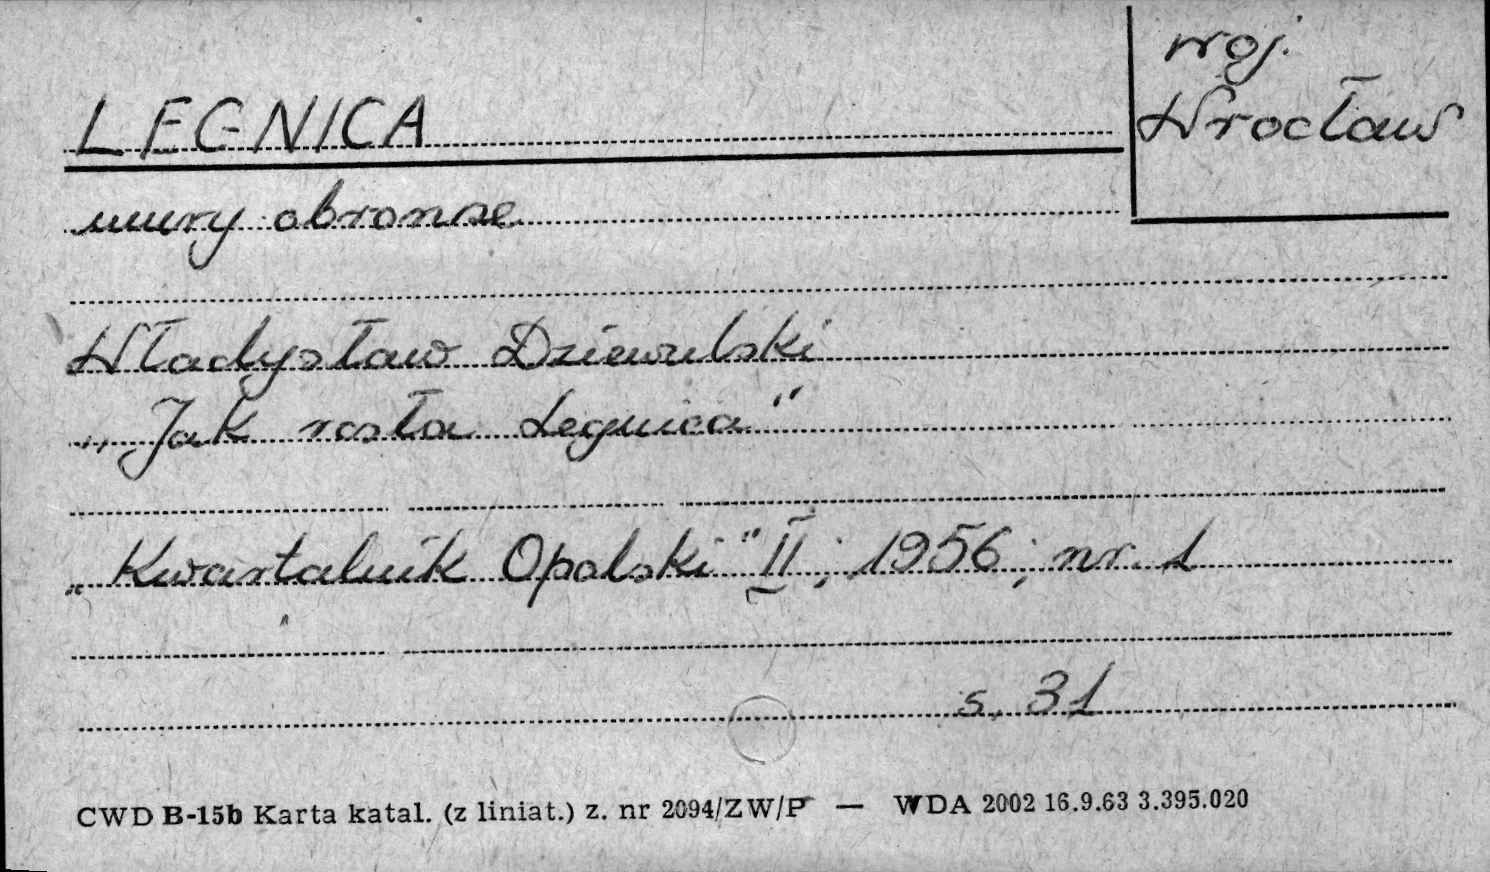 woj.
Wrocław
LEGNICA
mury obronne
Władysław Dziewulski
„Jak rosła Legnica"
„Kwartalnik Opolski" II; 1956; nr. 1
s. 31
CWD B-15b Karta katal. (z liniat.) z. nr 2094/ZW/P — WDA 2002 16.9.63 3.395.020